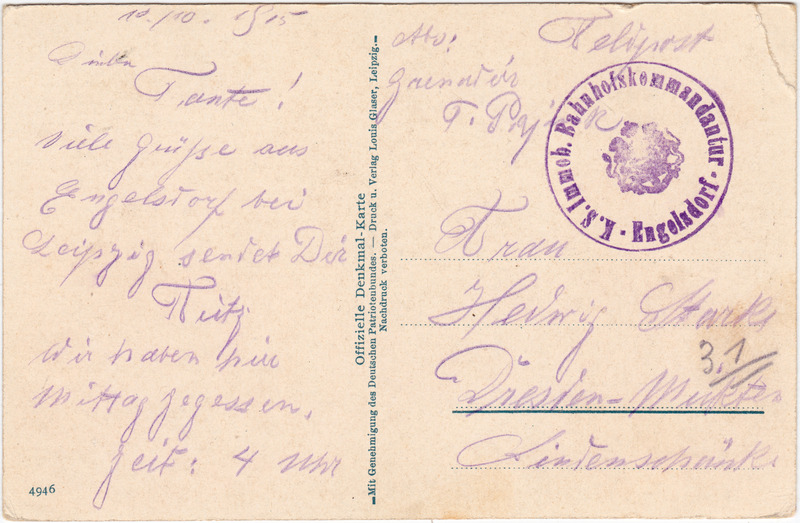 10./10. 1915
Tante!
Viele Grüße aus
Engelsdorf bei
Leipzig sendet Dir
Wir haben hier
Mittag gegessen.
Zeit: 4 Uhr
4946
Offizielle Denkmal-Karte
Mit Genehmigung des Deutschen Patriotenbundes. — Druck u. Verlag Louis Glaser, Leipzig.
Nachdruck verboten.
Abs: Feldpost
Grenadir
K.S. Immob. Bahnhofskommandantur · Engelsdorf ·
Frau
Hedwig Starke
3.1
Dresden-Mickten
Lindenschänke